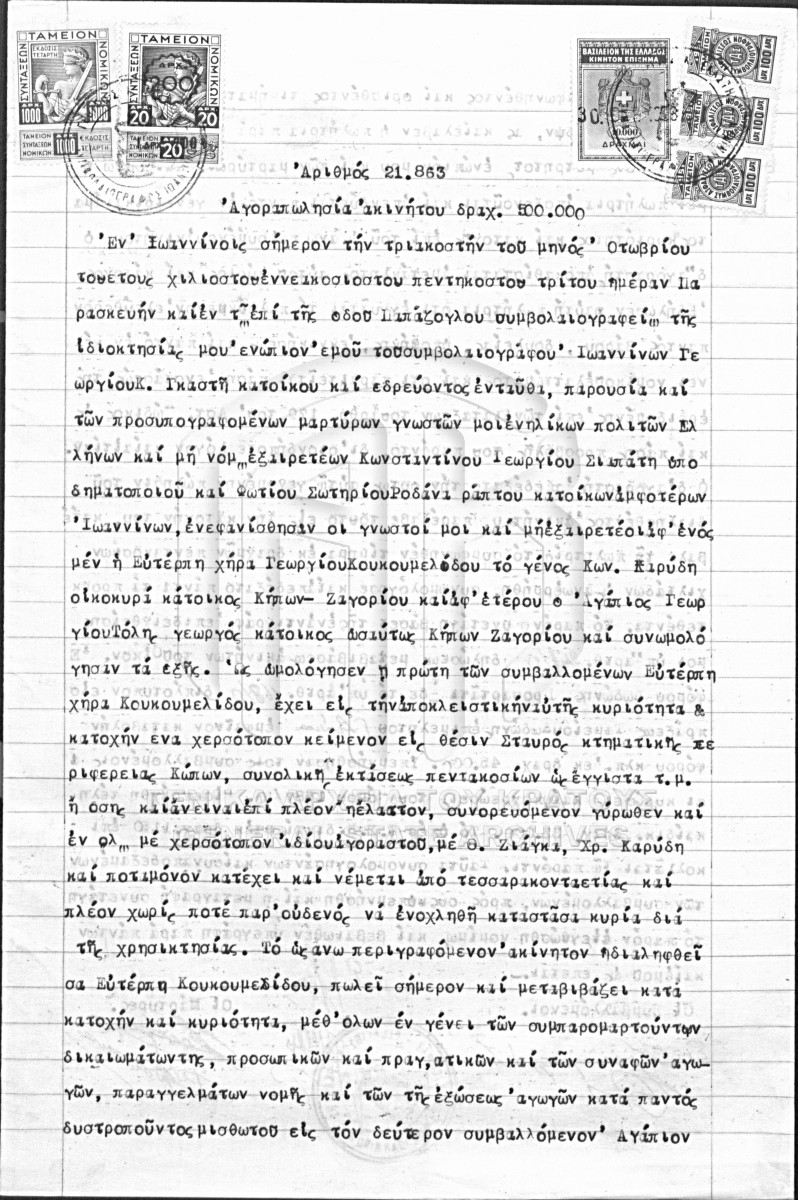 ΤΑΜΕΙΟΝ
ΝΟΜΙΚΩΝ
ΣΥΝΤΑΞΕΩΝ
ΕΚΔΟΣΙΣ
ΤΕΤΑΡΤΗ
1000
ΤΑΜΕΙΟΝ
ΣΥΝΤΑΞΕΩΝ
ΝΟΜΙΚΩΝ
ΤΑΜΕΙΟΝ
ΝΟΜΙΚΩΝ
ΣΥΝΤΑΞΕΩΝ
20 20
ΤΑΜΕΙΟΝ
ΣΥΝΤΑΞΕΩΝ
ΝΟΜΙΚΩΝ
20
ΒΑΣΙΛΕΙΟΝ ΤΗΣ ΕΛΛΑΔΟΣ
ΚΙΝΗΤΟΝ ΕΠΙΣΗΜΑ
10.000
ΔΡΑΧΜΑΙ
ΔΡ. 100 ΔΡ.
ΔΡ. 100 ΔΡ.
ΔΡ. 100 ΔΡ.
Ἀριθμός 21.863
Ἀγοραπωλησία ἀκινήτου δραχ. 500.000
Ἐν Ἰωαννίνοις σήμερον τήν τριακοστήν τοῦ μηνός Οτωβρίου
τουετους χιλιοστουέννεακοσιοστου πεντηκοστου τρίτου ημέραν Πα
ρασκευήν καιέν τῳ ἐπί τῆς οδου Παπάζογλου συμβολαιογραφείῳ τῆς
ἰδιοκτησίας μου ἐνώπιον ἐμοῦ τουσυμβολαιογράφου Ἰωαννίνων Γε
ωργίουΚ. Γκαστῆ κατοίκου καί εδρεύοντος ἐνταῦθα, παρουσία καί
τῶν προσυπογραφομένων μαρτύρων γνωστῶν μοιἐνηλίκων πολιτῶν Ελ
λήνων καί μή νόμῳ ἐξαιρετέων Κωνσταντίνου Γεωργίου Σιαπάτη υπο
δηματοποιοῦ καί Φωτίου ΣωτηρίουΡοδάνα ράπτου κατοίκωνἀμφοτέρων
Ἰωαννίνων, ἐνεφανίσθησαν οι γνωστοί μοι καί μήἐξαιρετέοιἀφ'ἑνός
μέν ἡ Εὐτέρπη χήρα ΓεωργίουΚουκουμελίδου τό γένος Κων. Καρύδη
οἰκοκυρά κάτοικος Κήπων- Ζαγορίου καίἀφ'ἑτέρου ὁ Ἀγάπιος Γεωρ
γίουΤόλης γεωργός κάτοικος ὡσαύτως Κήπων Ζαγορίου καί συνωμολό
γησαν τά ἑξῆς. Ὡς ὡμολόγησεν ἡ πρώτη τῶν συμβαλλομένων Εὐτέρπη
χήρα Κουκουμελίδου, ἔχει εἰς τήνἀποκλειστικήναὐτῆς κυριότητα &
κατοχήν ενα χερσότοπον κείμενον εἰς θέσιν Σταυρός κτηματικῆς πε
ριφερειας Κώπων, συνολικῆς ἐκτάσεως πεντακοσίων ὡς ἔγγιστα τ.μ.
ἤ οσης κιἄνειναιἐπί πλέον ἠέλαττον, συνορευόμενον γύρωθεν καί
ἐν ολῳ μέ χερσότοπον ἰδίουἀγοριστοῦ, μέ Θ. Ζιάγκα, Χρ. Καρύδη
καί ποταμόνον κατέχει καί νέμεται ἀπό τεσσαρακονταετίας καί
πλέον χωρίς ποτέ παρ'οὐδενός νά ἐνοχληθῆ καταστᾶσα κυρία διά
τῆς χρησικτησίας. Τό ὡς ανω περιγραφόμενον ἀκίνητον ἡδιαληφθεῖ
σα Εὐτέρπη Κουκουμελίδου, πωλεῖ σήμερον καί μεταβιβάζει κατά
κατοχήν καί κυριότητα, μέθ'όλων ἐν γένει τῶν συμπαρομαρτούντων
δικαιωμάτωντης, προσωπικῶν καί πραγ,ατικῶν καί τῶν συναφῶν ἀγω-
γῶν, παραγγελμάτων νομῆς καί τῶν τῆς ἐξώσεως ἀγωγῶν κατά παντός
δυστροποῦντος μισθωτοῦ εἰς τόν δεύτερον συμβαλλόμενον Ἀγάπιον